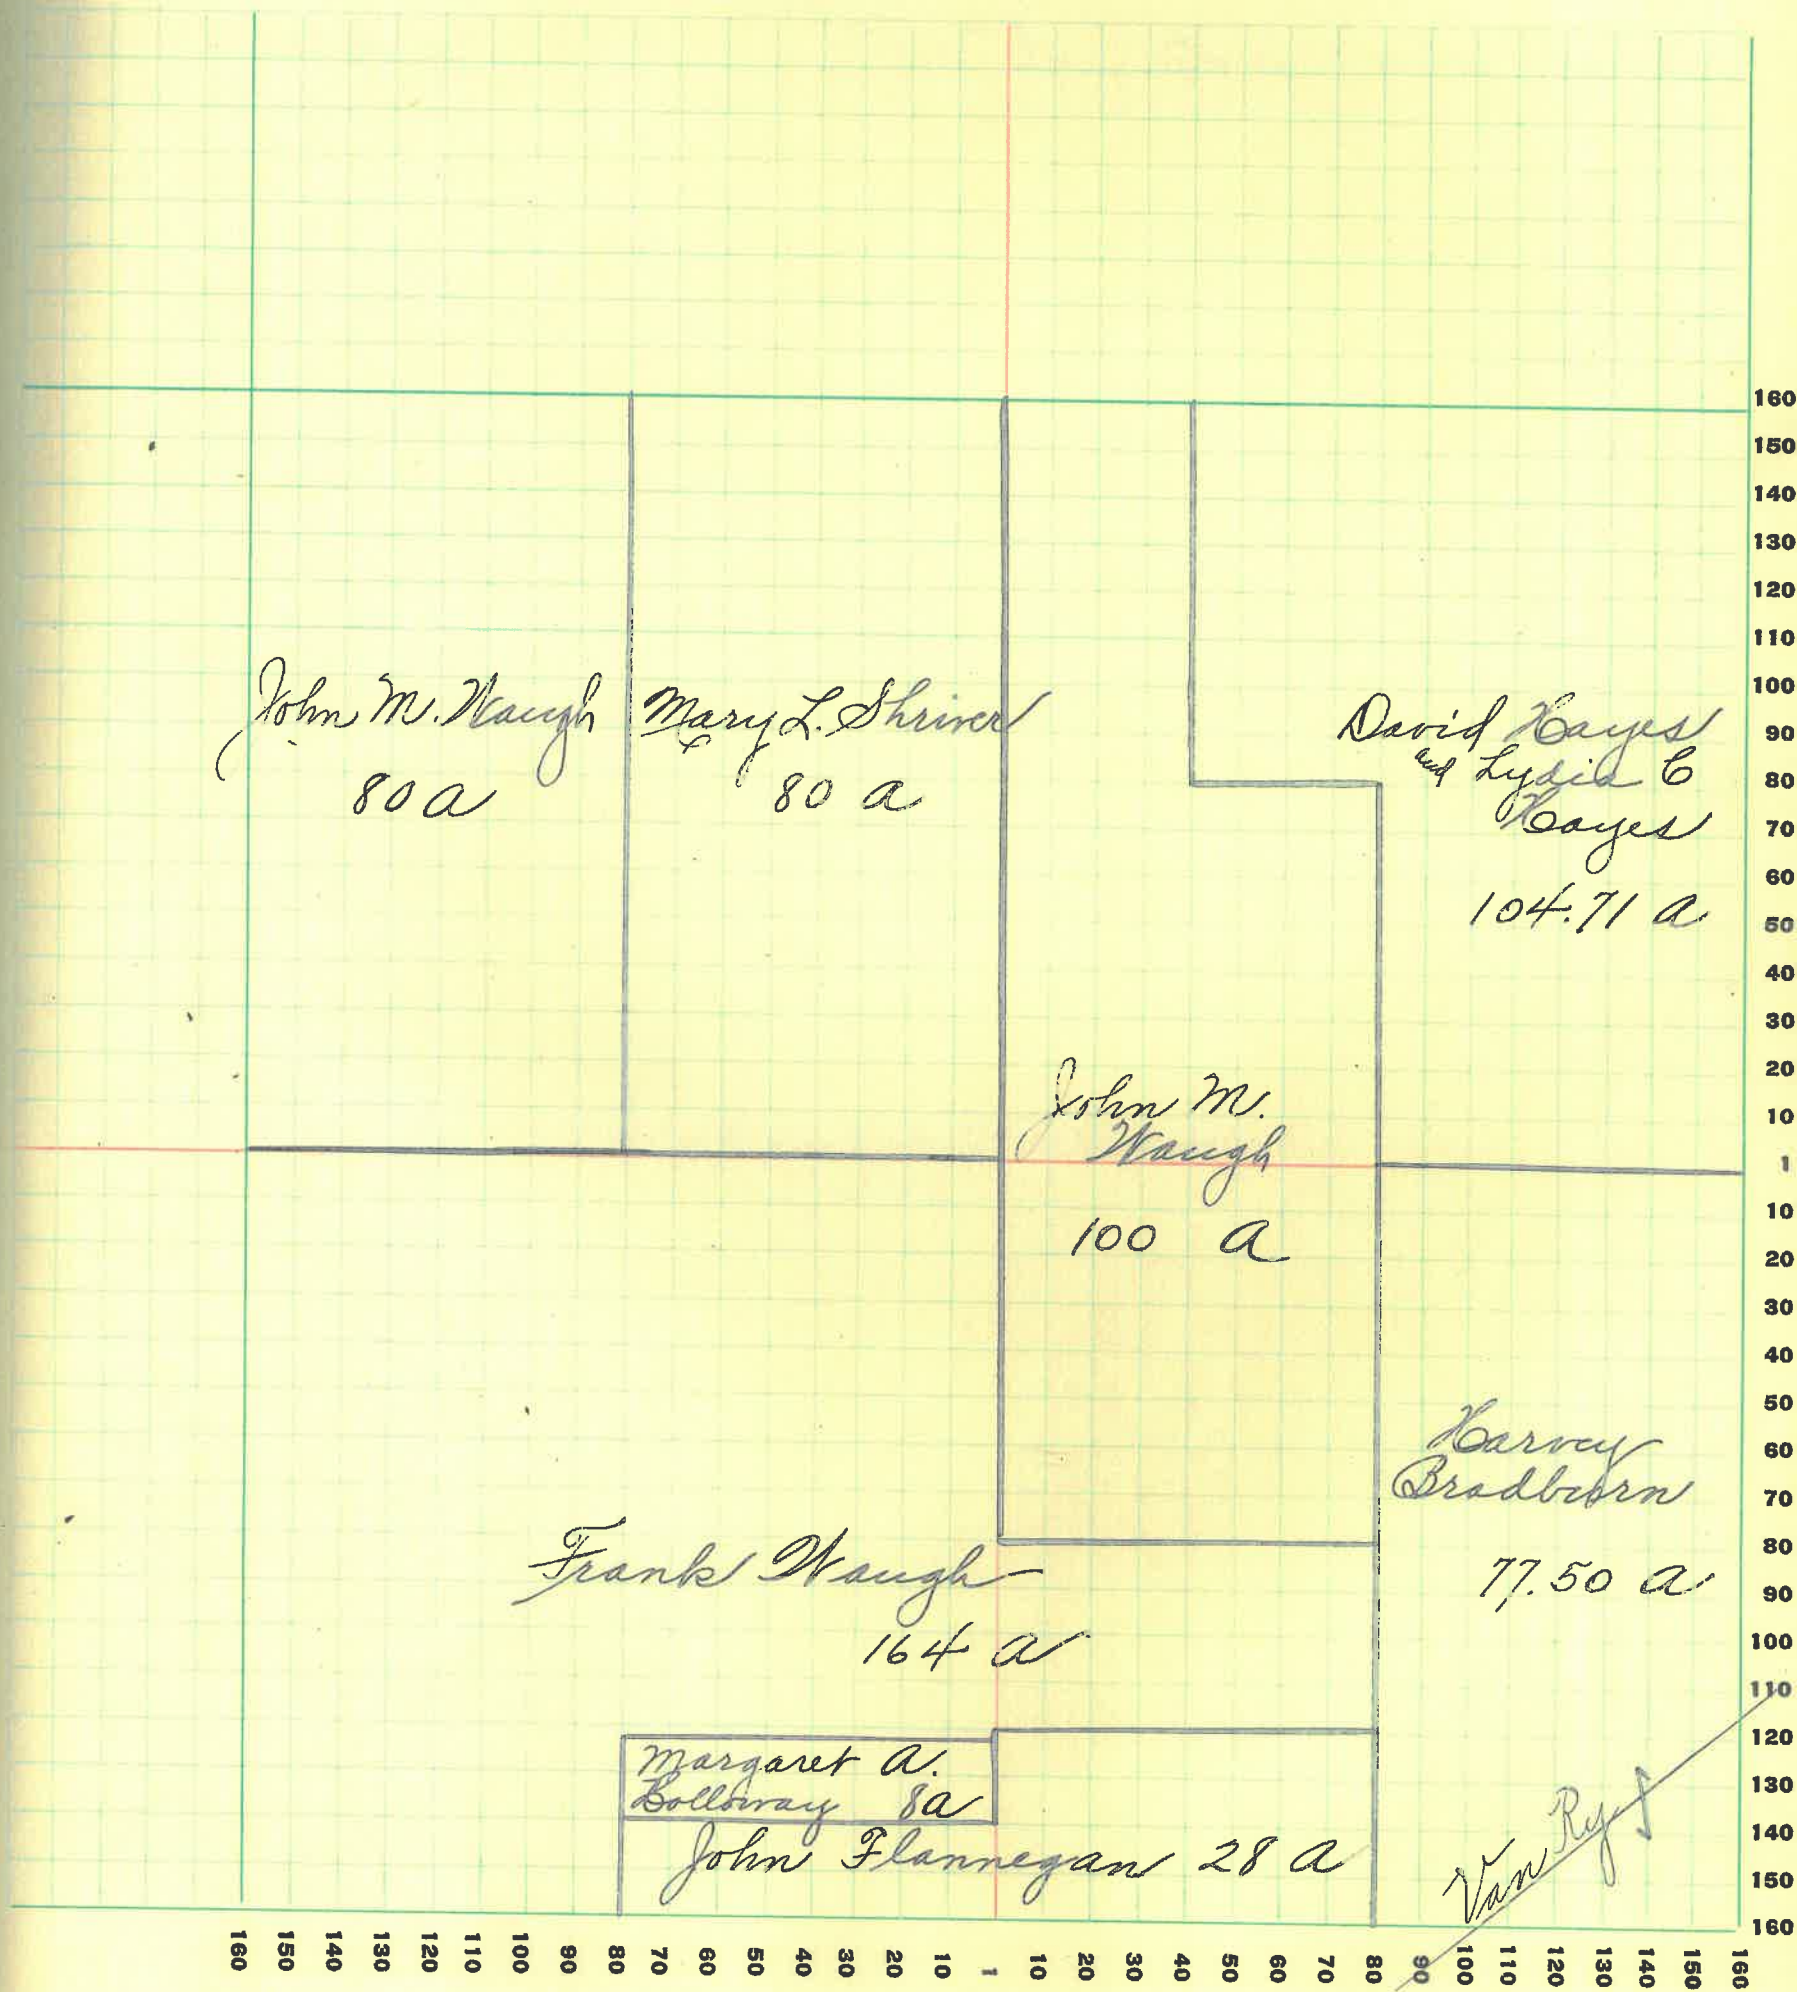 John M. Waugh
80 a
Mary L. Shriver
80 a
David Hayes
and Lydia C
Hayes
104.71 a
John M.
Waugh
100 a
Harvey
Bradburn
77.50 a
Frank Waugh
164 a
Margaret A.
8a
John Flannegan 28 a
Van Ry
160
150
140
130
120
110
100
90
80
70
60
50
40
30
20
10
1
10
20
30
40
50
60
70
80
90
100
110
120
130
140
150
160
160 150 140 130 120 110 100 90 80 70 60 50 40 30 20 10 1 10 20 30 40 50 60 70 80 90 100 110 120 130 140 150 160